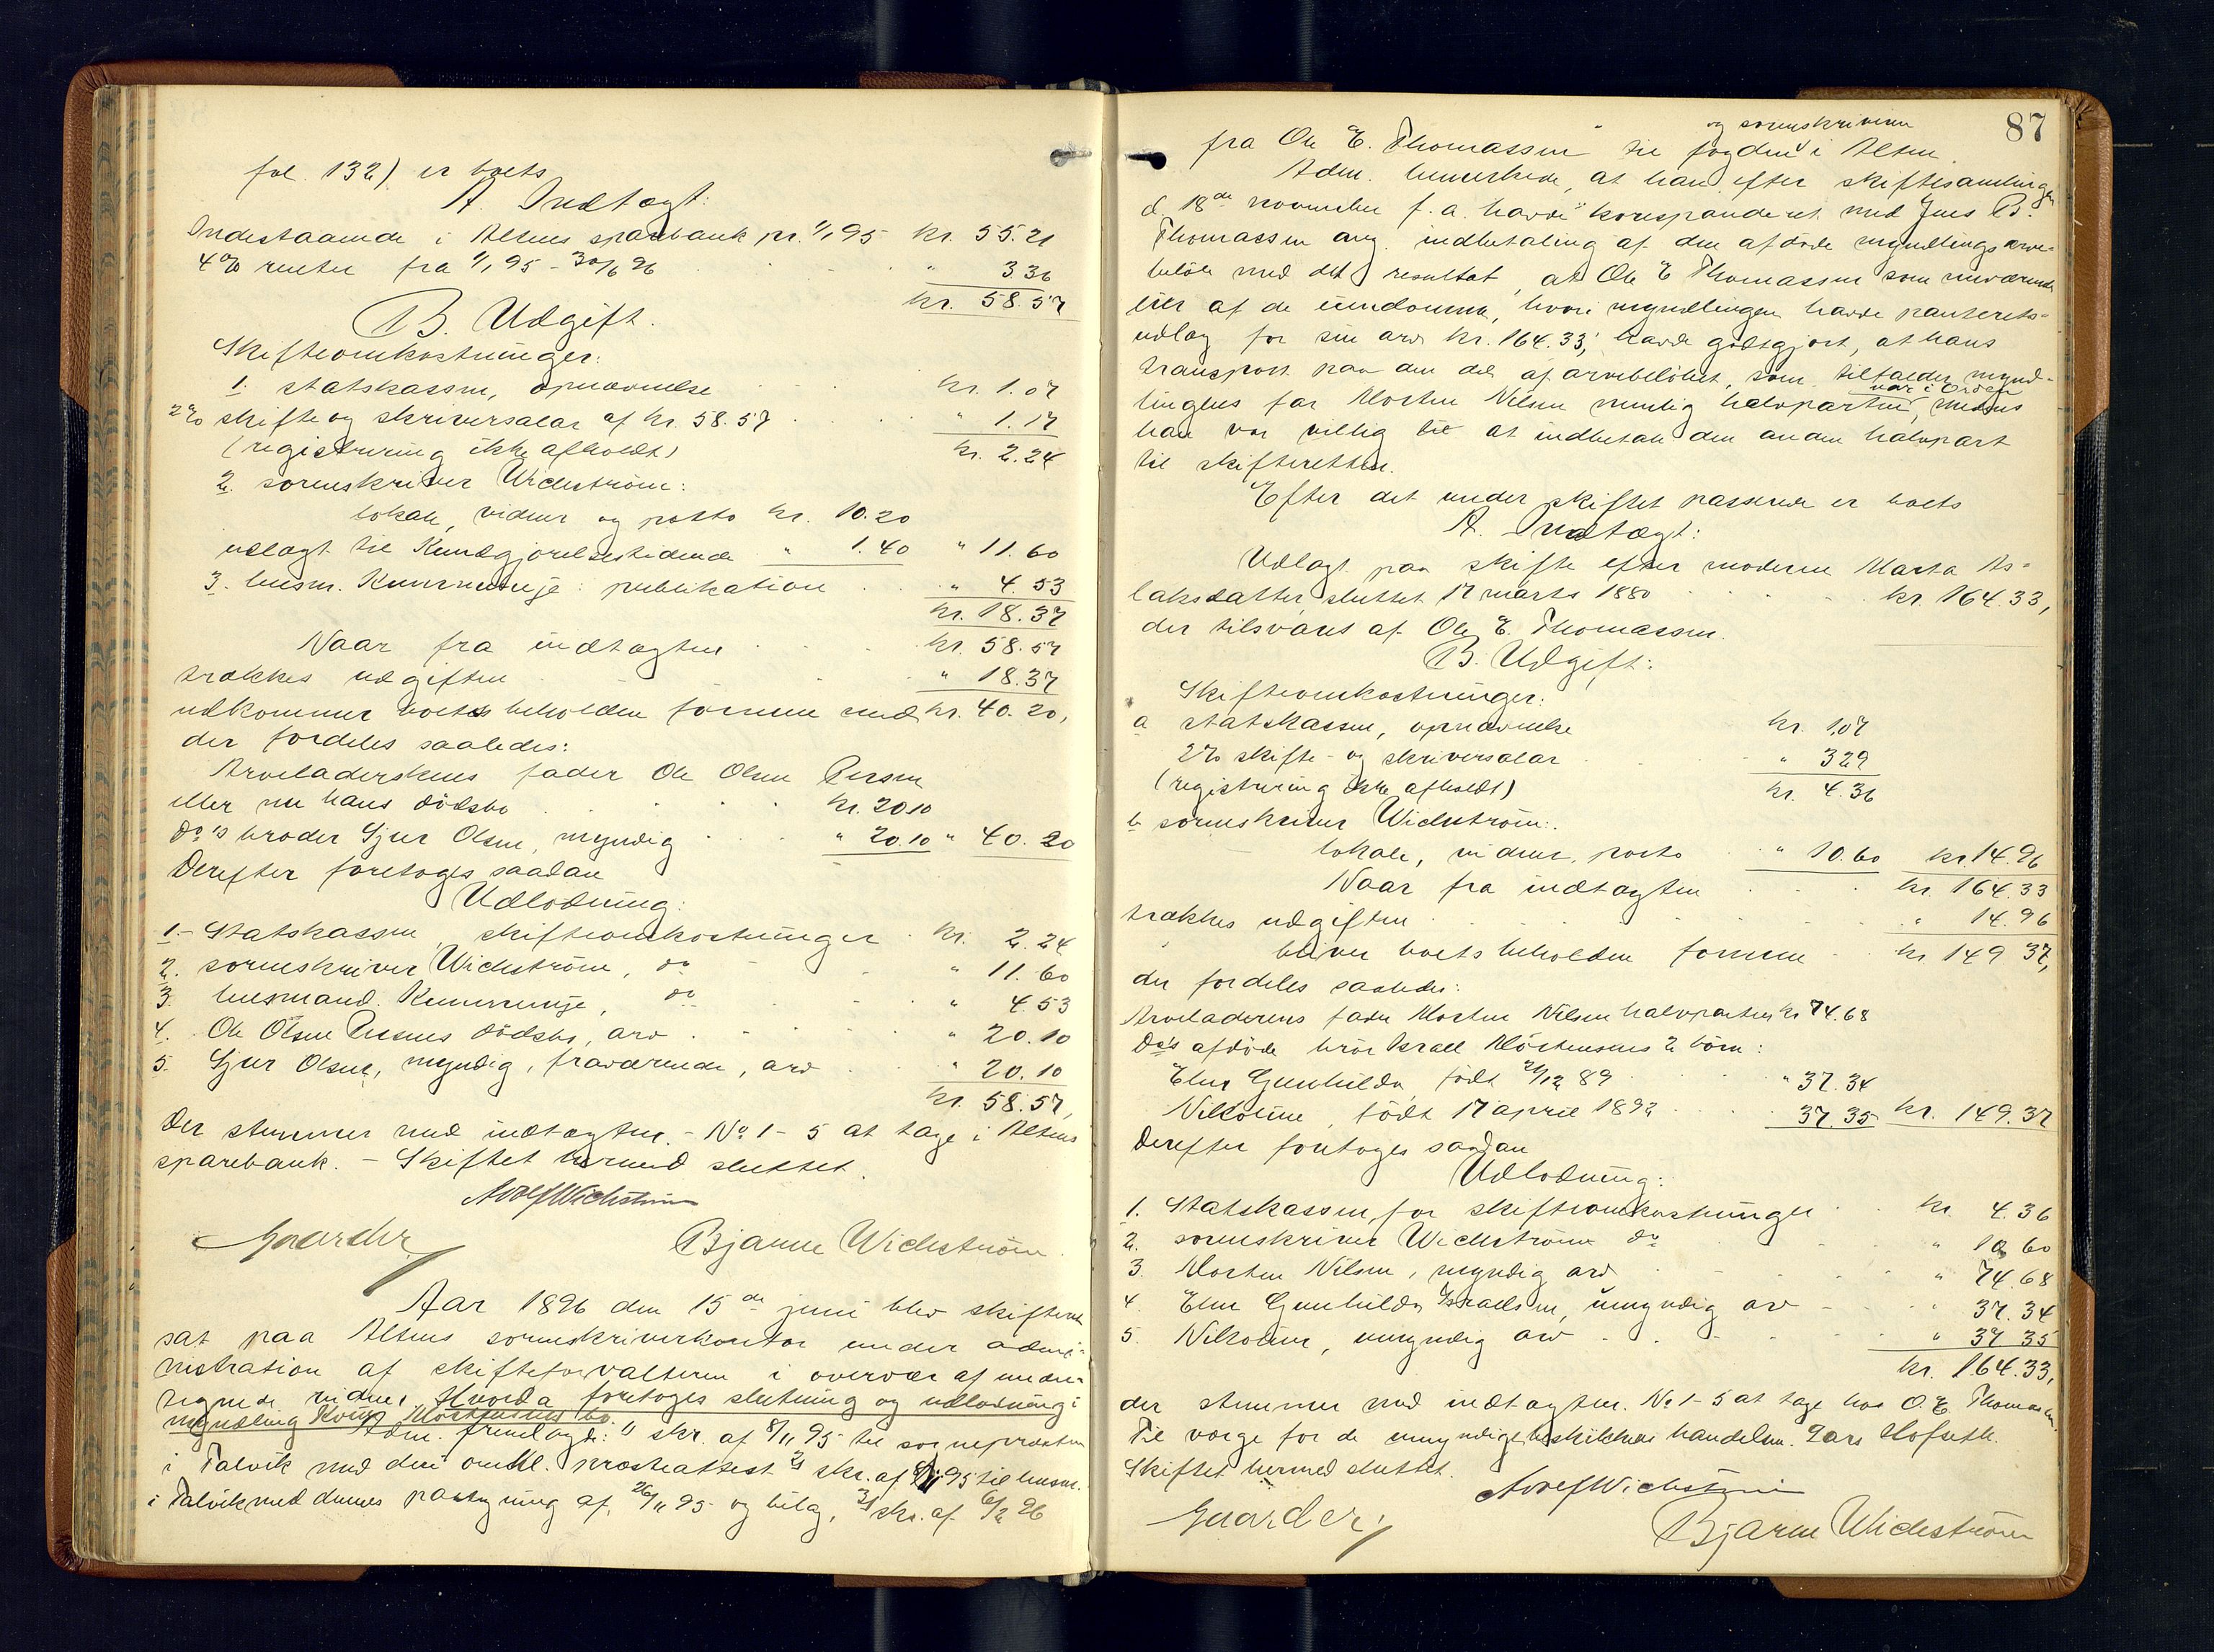 fol. 132) er boets
A. Indtægt:
Indestaaende i Altens sparebank pr. 1/1 95 kr. 55.21
4% renter fra 1/1 95 - 30/6 96 " 3 36
kr. 58.57
B. Udgift.
Skifteomkostninger:
1. statskassen, opnævnelse kr. 1.07
2% skifte og skriversalar af kr. 58.57 " 1.17
(registrering ikke afholdt) kr. 2.24
2. sorenskriver Wichstrøm:
lokale, vidner og porto kr. 10.20
udlagt til Kundgjørelsestidende " 1.40 " 11.60
3. lensm. Kummeneje: publikation " 4.53
kr. 18.37
Naar fra indtægten kr. 58.57
trækkes udgiften " 18.37
udkommer boets beholden formue med kr. 40.20,
der fordeles saaledes:
Arveladerskens fader Ole Olsen Persen
eller nu hans dødsbo kr. 20.10
do's broder Sjur Olsen, myndig " 20.10 " 40.20
Derefter foretoges saadan
Udlodning:
1. Statskassen, skifteomkostninger kr. 2.24
2. sorenskriver Wichstrøm, do " 11.60
3. lensmand Kummeneje, do " 4.53
4. Ole Olsen Persens dødsbo, arv " 20.10
5. Sjur Olsen, myndig, fraværende, arv " 20.10
kr. 58.57,
Der stemmer med indtægten. - No 1 - 5 at tage i Altens
sparebank. - Skiftet hermed sluttet.
Adolf Wichstrøm
Gaarder Bjarne Wichstrøm
Aar 1896 den 15de juni blev skifteret
sat paa Altens sorenskriverkontor under admi-
nistration af skifteforvalteren i overvær af under-
tegnede vidner. Hvorda foretoges slutning og udlodning i
myndling Mortensens bo.
Adm. fremlagde: 1) skr. af 8/11 95 til sognepræsten
i Talvik med den omhl. præsteattest 2) skr. af 8/11 95 til lensm.
i Talvik med dennes paategning af 26/11 95 og bilag, 3) skr. af 6/2 96
87
og sorenskriveren
fra Ole E. Thomassen til fogden i Alten.
Adm. bemerkede, at han efter skiftesamlingen
d. 18de november f. a. havde korresponderet med Jens B.
Thomassen ang. indbetaling af den afdøde myndlings arve-
beløb med det resultat, at Ole E Thomassen som nuværende
eier af de eiendomme, hvori myndlingen havde panterets-
udlæg for sin arv kr. 164.33, havde godtgjort, at hans
transport paa den del af arvebeløbet, som tilfalder mynd-
var i orden
lingens far Morten Nilsen nemlig halvparten, medens
han var villig til at indbetale den anden halvpart
til skifteretten.
Efter det under skiftet passerede er boets
A. Indtægt:
Udlagt paa skifte efter moderen Marta As-
laksdatter, sluttet 17 marts 1880 kr. 164.33,
der tilsvares af Ole E. Thomassen.
B. Udgift:
Skifteomkostninger:
a statskassen, opnævnelse kr. 1.07
2% skifte- og skriversalar " 3 29
(registrering ikke afholdt) kr. 4.36
b sorenskriver Wichstrøm:
lokale, vidner, porto " 10.60 kr 14.96
Naar fra indtægten kr. 164.33
trækkes udgiften " 14.96
bliver boets beholden formue kr 149 37,
der fordeles saaledes:
Arveladerens fader Morten Nilsen halvparten kr 74.68
Do's afdøde bror Israel Mortensens 2 børn:
Elen Gunhilda, født 21/12 89 " 37.34
Nikoline, født 17 april 1892 37.35 kr. 149.37
Derefter foretoges saadan
Udlodning:
1. Statskassen, for skifteomkostninger kr. 4.36
2. sorenskriver Wichstrøm do " 10 60
3. Morten Nilsen, myndig arv " 74.68
4. Elen Gunhilda Israelsen, umyndig arv " 37.34
5. Nikoline, umyndig arv " 37 35
kr. 164.33,
der stemmer med indtægten. No 1-5 at tage hos O. E. Thomassen.
Til værge for de umyndige beskikkes handelsm. Lars Hofseth.
Skiftet hermed sluttet.
Adolf Wichstrøm
Gaarder Bjarne Wichstrøm